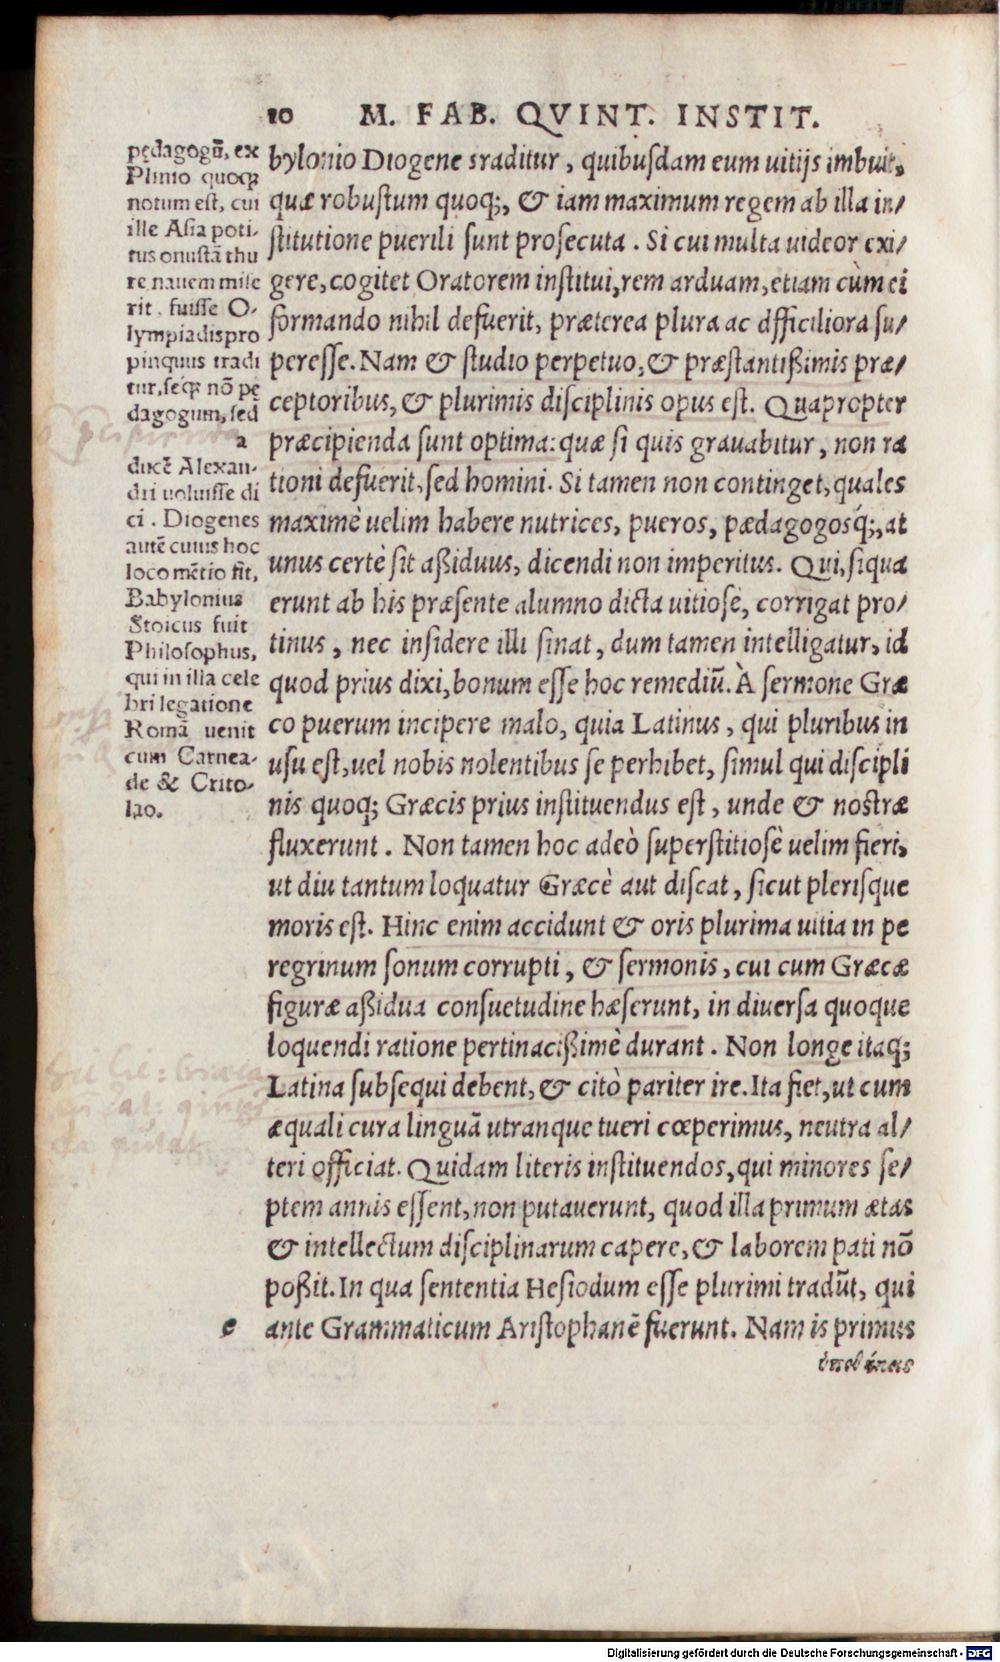 10 M. FAB. QVINT. INSTIT.
pędagogū, ex
Plinio quoqꝫ
notum est, cui
ille Asia poti-
tus onustā thu
re nauem mise
rit, fuisse O-
lympiadis pro
pinquus tradi
tur, seqꝫ nō pę
dagogum, sed
a
ducē Alexan-
dri uoluisse di
ci. Diogenes
autē cuius hoc
loco mētio fit,
Babylonius
Stoicus fuit
Philosophus,
qui in illa cele
bri legatione
Romā uenit
cum Carnea-
de & Crito-
lao.
bylonio Diogene sraditur, quibusdam eum uitijs imbuit,
quæ robustum quoq;, & iam maximum regem ab illa in/
stitutione puerili sunt prosecuta. Si cui multa uideor exi/
gere, cogitet Oratorem institui, rem arduam, etiam cùm ei
formando nihil defuerit, præterea plura ac dfficiliora su/
peresse. Nam & studio perpetuo, & præstantißimis præ/
ceptoribus, & plurimis disciplinis opus est. Quapropter
præcipienda sunt optima: quæ si quis grauabitur, non ra
tioni defuerit, sed homini. Si tamen non continget, quales
maximè uelim habere nutrices, pueros, pædagogosq́;, at
unus certè sit aßiduus, dicendi non imperitus. Qui, siqua
erunt ab his præsente alumno dicta uitiose, corrigat pro/
tinus, nec insidere illi sinat, dum tamen intelligatur, id
quod prius dixi, bonum esse hoc remediū. À sermone Græ
co puerum incipere malo, quia Latinus, qui pluribus in
usu est, uel nobis nolentibus se perhibet, simul qui discipli
nis quoq; Græcis prius instituendus est, unde & nostræ
fluxerunt. Non tamen hoc adeò superstitiosè uelim fieri,
ut diu tantum loquatur Græcè aut discat, sicut plerisque
moris est. Hinc enim accidunt & oris plurima uitia in pe
regrinum sonum corrupti, & sermonis, cui cum Græcæ
figuræ aßidua consuetudine hæserunt, in diuersa quoque
loquendi ratione pertinacißimè durant. Non longe itaq;
Latina subsequi debent, & citò pariter ire. Ita fiet, ut cum
æquali cura linguā utranque tueri cœperimus, neutra al/
teri officiat. Quidam literis instituendos, qui minores se/
ptem annis essent, non putauerunt, quod illa primum ætas
& intellectum disciplinarum capere, & laborem pati nō
poßit. In qua sententia Hesiodum esse plurimi tradūt, qui
e ante Grammaticum Aristophanē fuerunt. Nam is primus
Digitalisierung gefördert durch die Deutsche Forschungsgemeinschaft - DFG